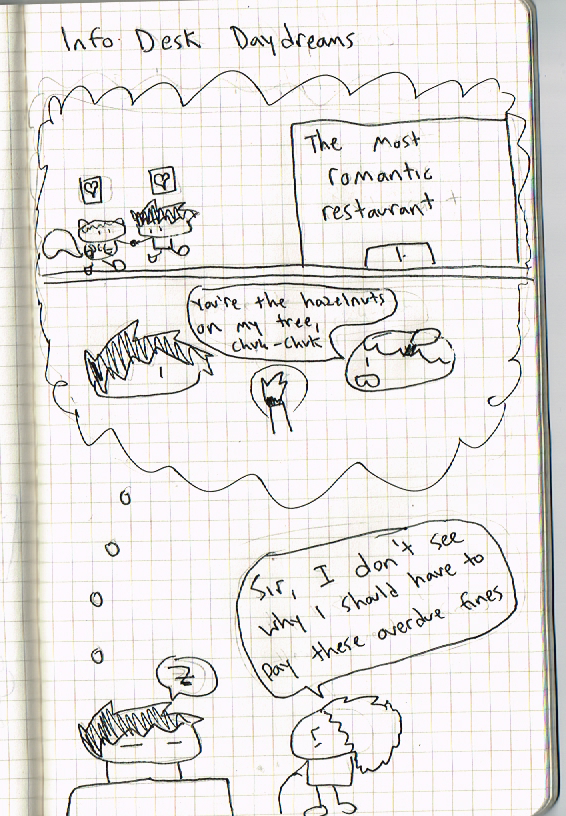 Info Desk Daydreams
The Most
romantic
restaurant
You're the hazelnuts
on my tree,
chuk-chuk
Z
Sir, I don't see
why I should have to
pay these overdue fines